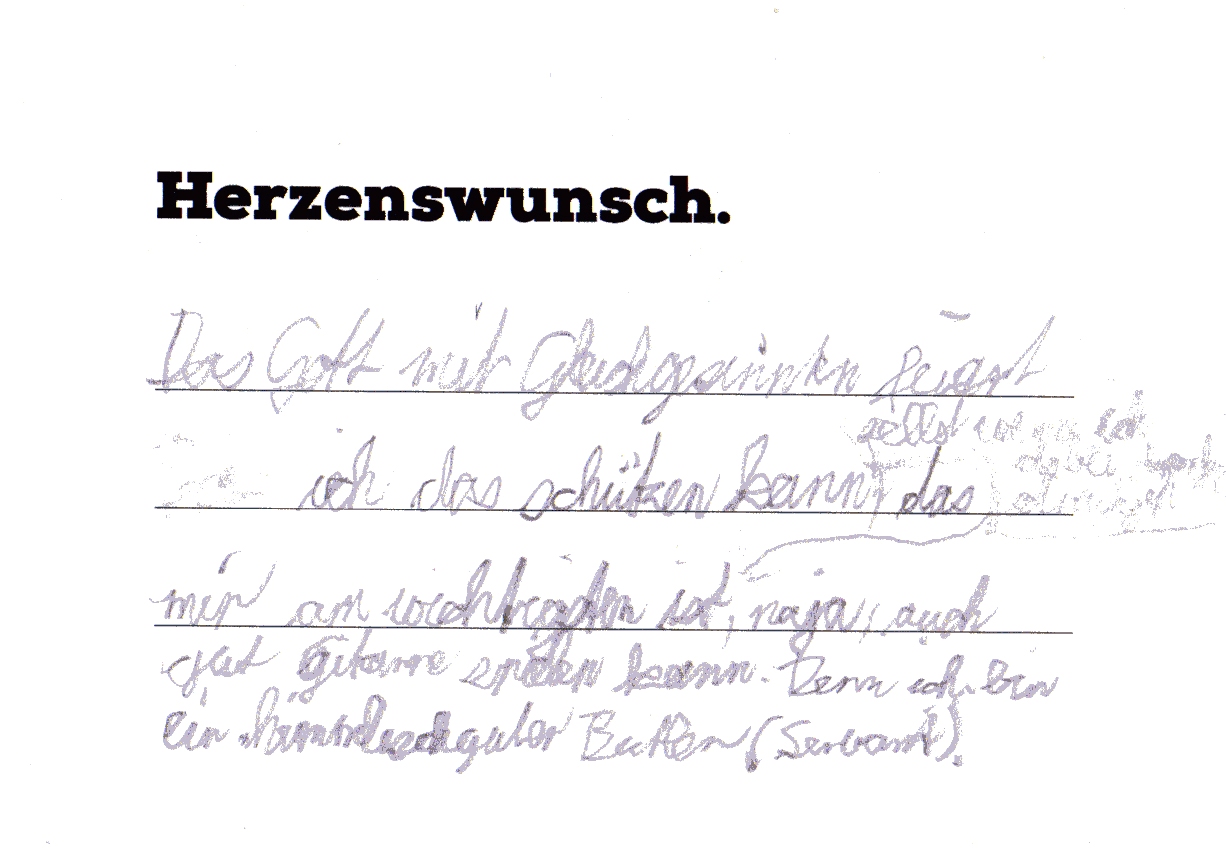 Herzenswunsch.
Das Gott mir Gleichgesinnten
selbst wenn ich
ich das schützen kann, das
dabei
mir am wichtigsten ist, naja, auch
gut Gitarre spielen kann. Denn ich bin
ein guter (Servant).